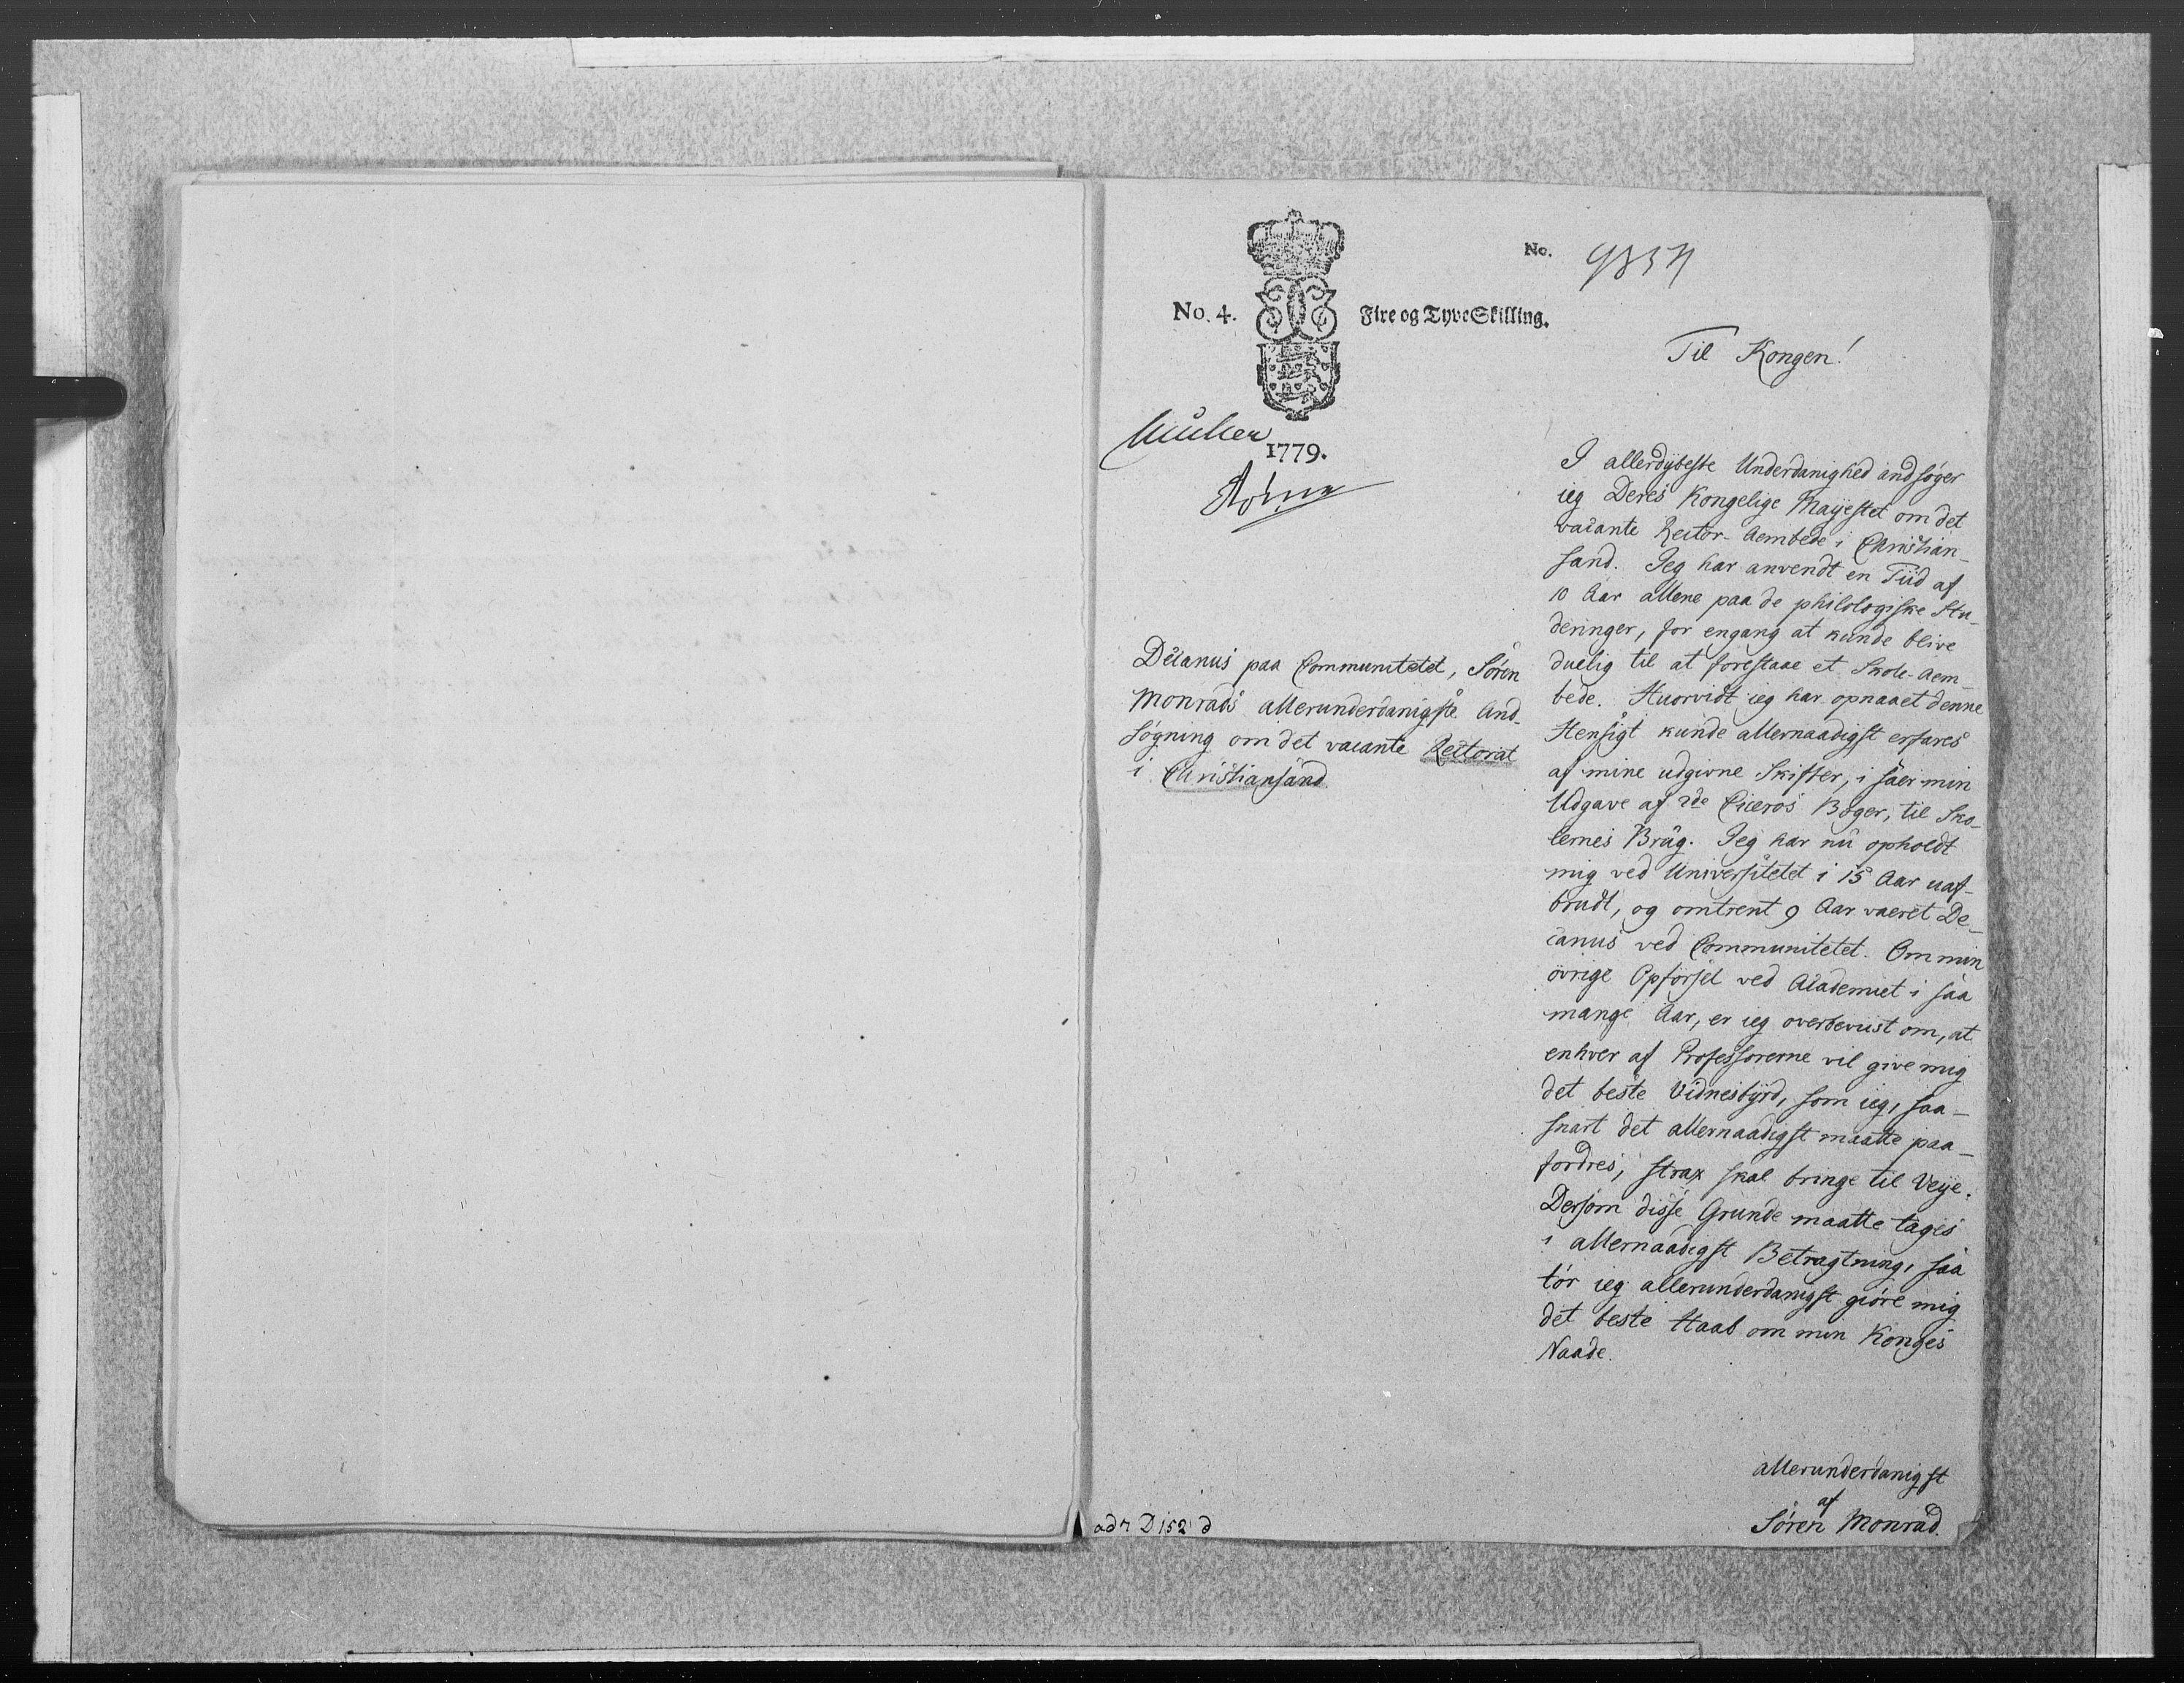 No. 4.
Fire og Tyve Skilling.
No.
1779.
Müller
Til Kongen!
Decanus paa Communitetet, Søren
Monrads allerunderdanigste And-
søgning om det vacante Rectorat
i Christiansand.
I allerdybeste Underdanighed andsøger
jeg Deres Kongelige Mayestet om det
vacante Rector-Aembede i Christian-
sand. Jeg har anvendt en Tiid af
10 Aar allene paa de philologiske Stu-
deringer, for engang at kunde blive
duelig til at forestaae et Skole-Aem-
bede. Huorvidt jeg har opnaaet denne
Hensigt kunde allernaadigst erfares
af mine udgivne Skifter, i sær min
Udgave af 2de Ciceros Bøger, til Sko-
lernes Brug. Jeg har nu opholdt
mig ved Universitetet i 15 Aar uaf-
brudt, og omtrent 9 Aar været De-
canus ved Communitetet. Om min
øvrige Opførsel ved Academiet i saa
mange Aar, er jeg overbeviist om, at
enhver af Professorerne vil give mig
det beste Vidnesbyrd, som jeg, saa-
snart det allernaadigst maatte paa-
fordres, strax skal bringe til Veye.
Dersom disse Grunde maatte tages
i allernaadigst Betragtning, saa
tør jeg allerunderdanigst giøre mig
det beste Haab om min Konges
Naade.
allerunderdanigst
af
Søren Monrad.
ad D 152 d